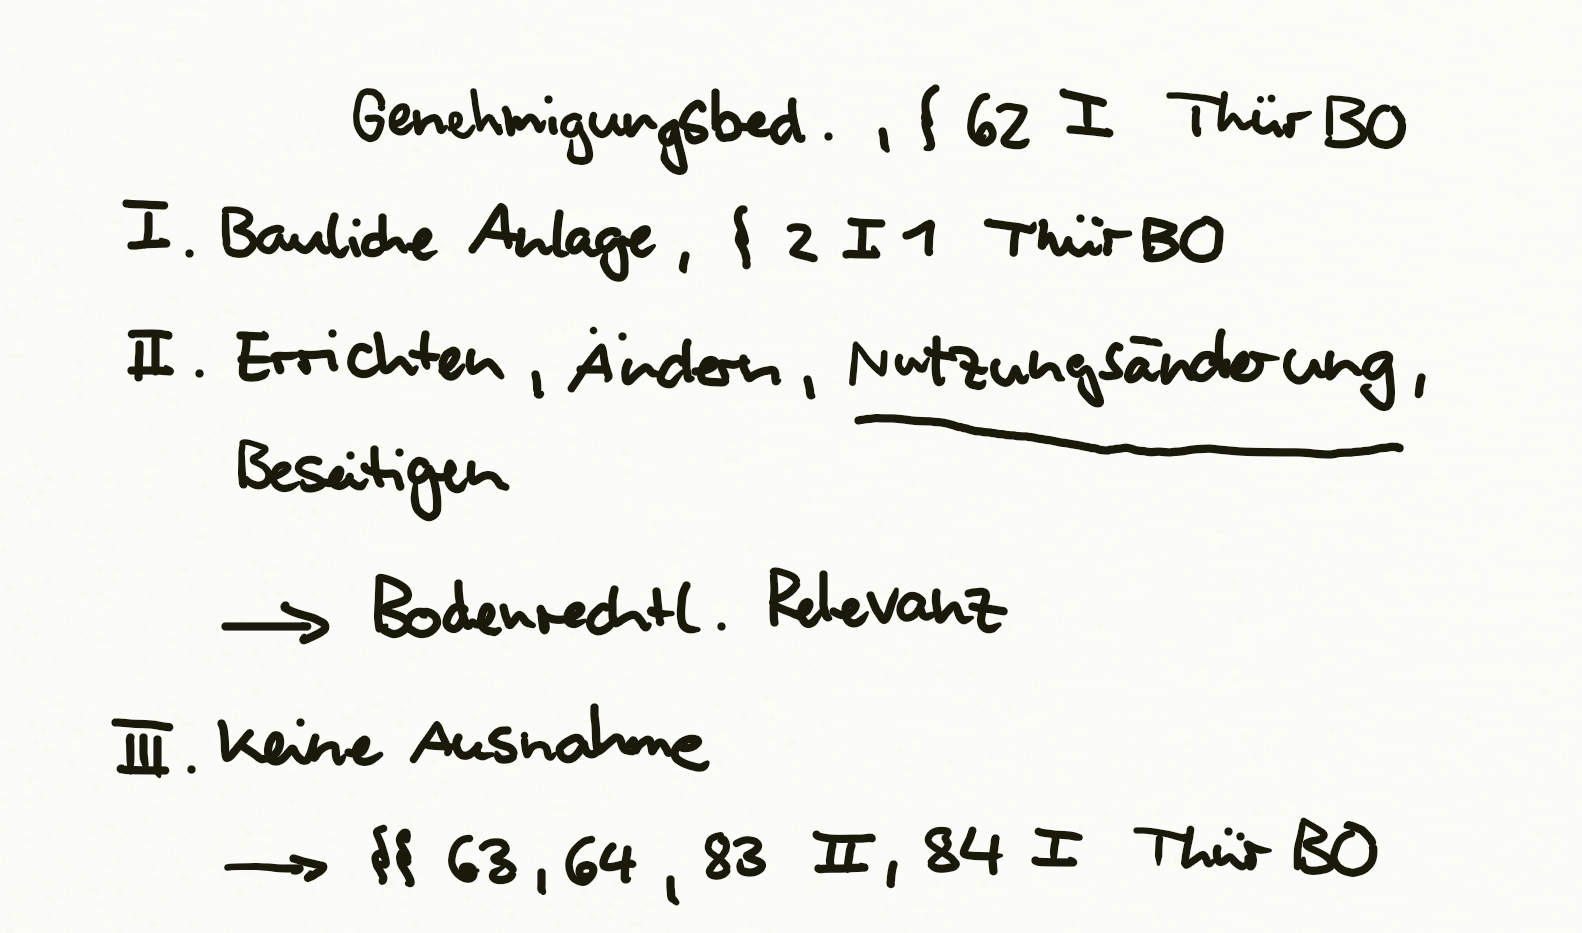 Genehmigungsbed. , § 62 I ThürBO
I. Bauliche Anlage, § 2 I 1 ThürBO
II. Errichten, Ändern, Nutzungsänderung,
Beseitigen
→ Bodenrechtl. Relevanz
III. Keine Ausnahme
→ §§ 63, 64, 83 II, 84 I ThürBO